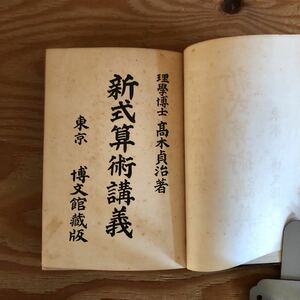 理學博士 髙木貞治著
新式算術講義
東京 博文館藏版